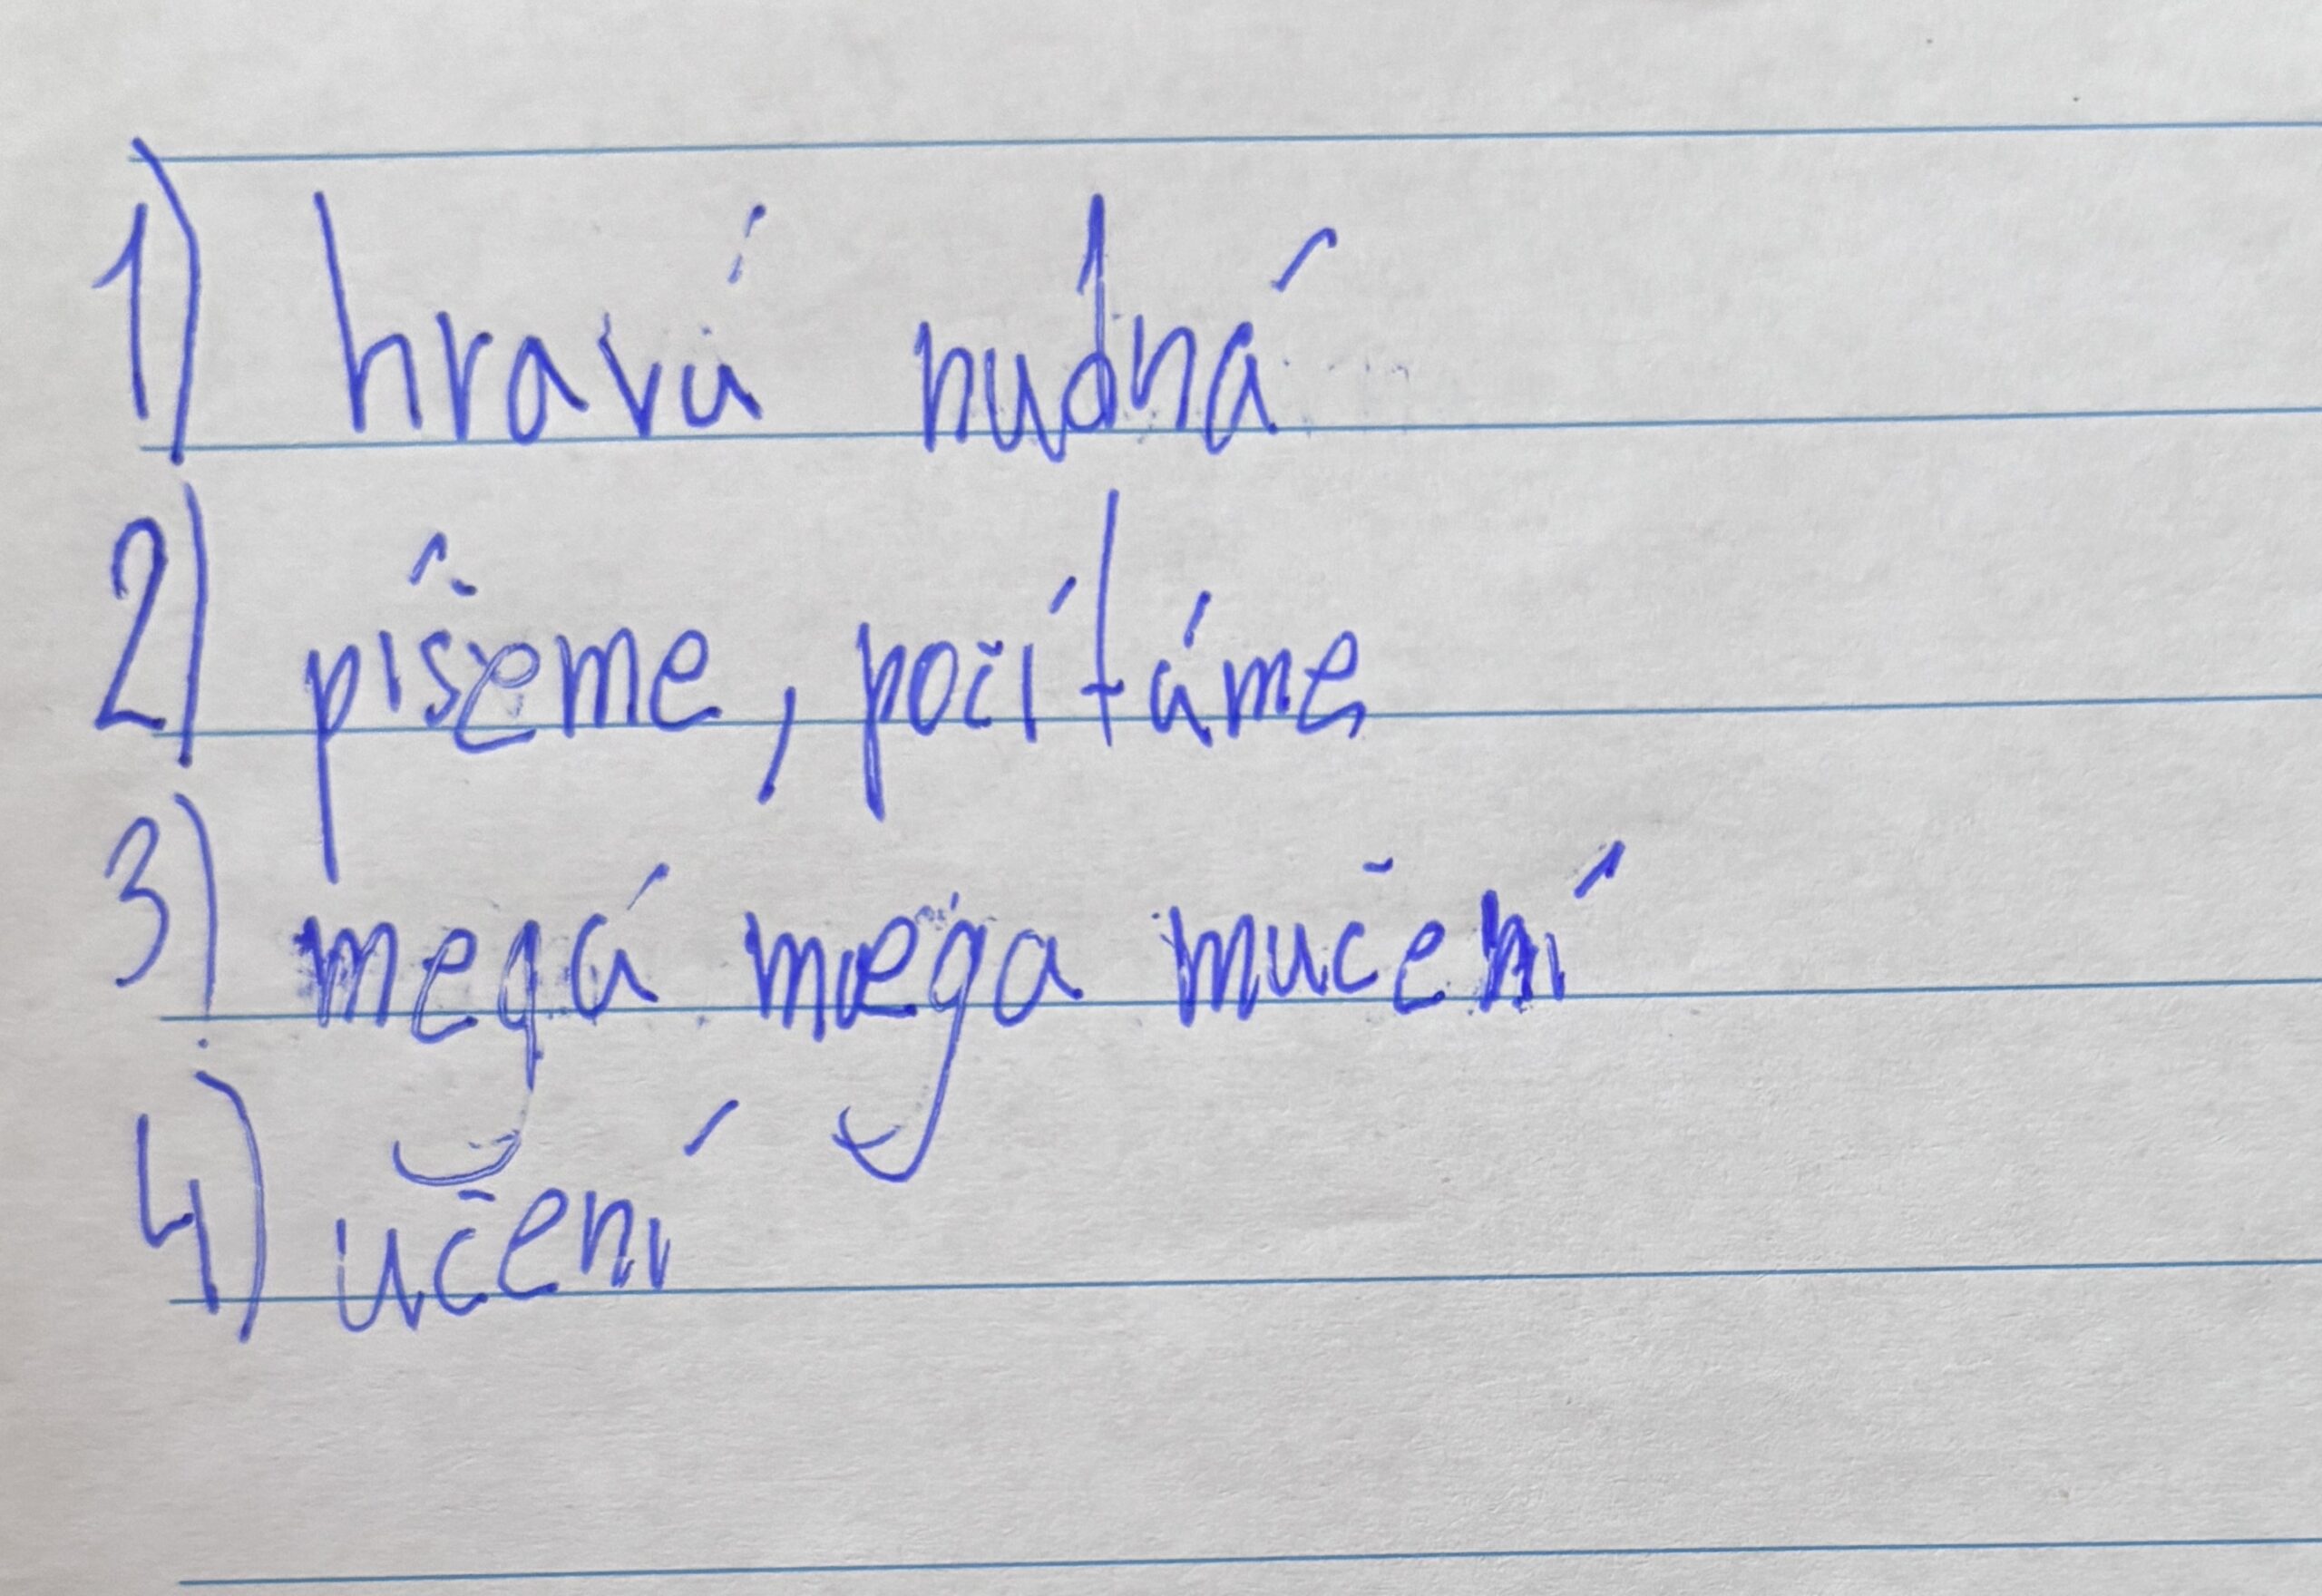 1) hravá nudná
2) píšeme, počítáme
3) megá mega mučení
4) učení